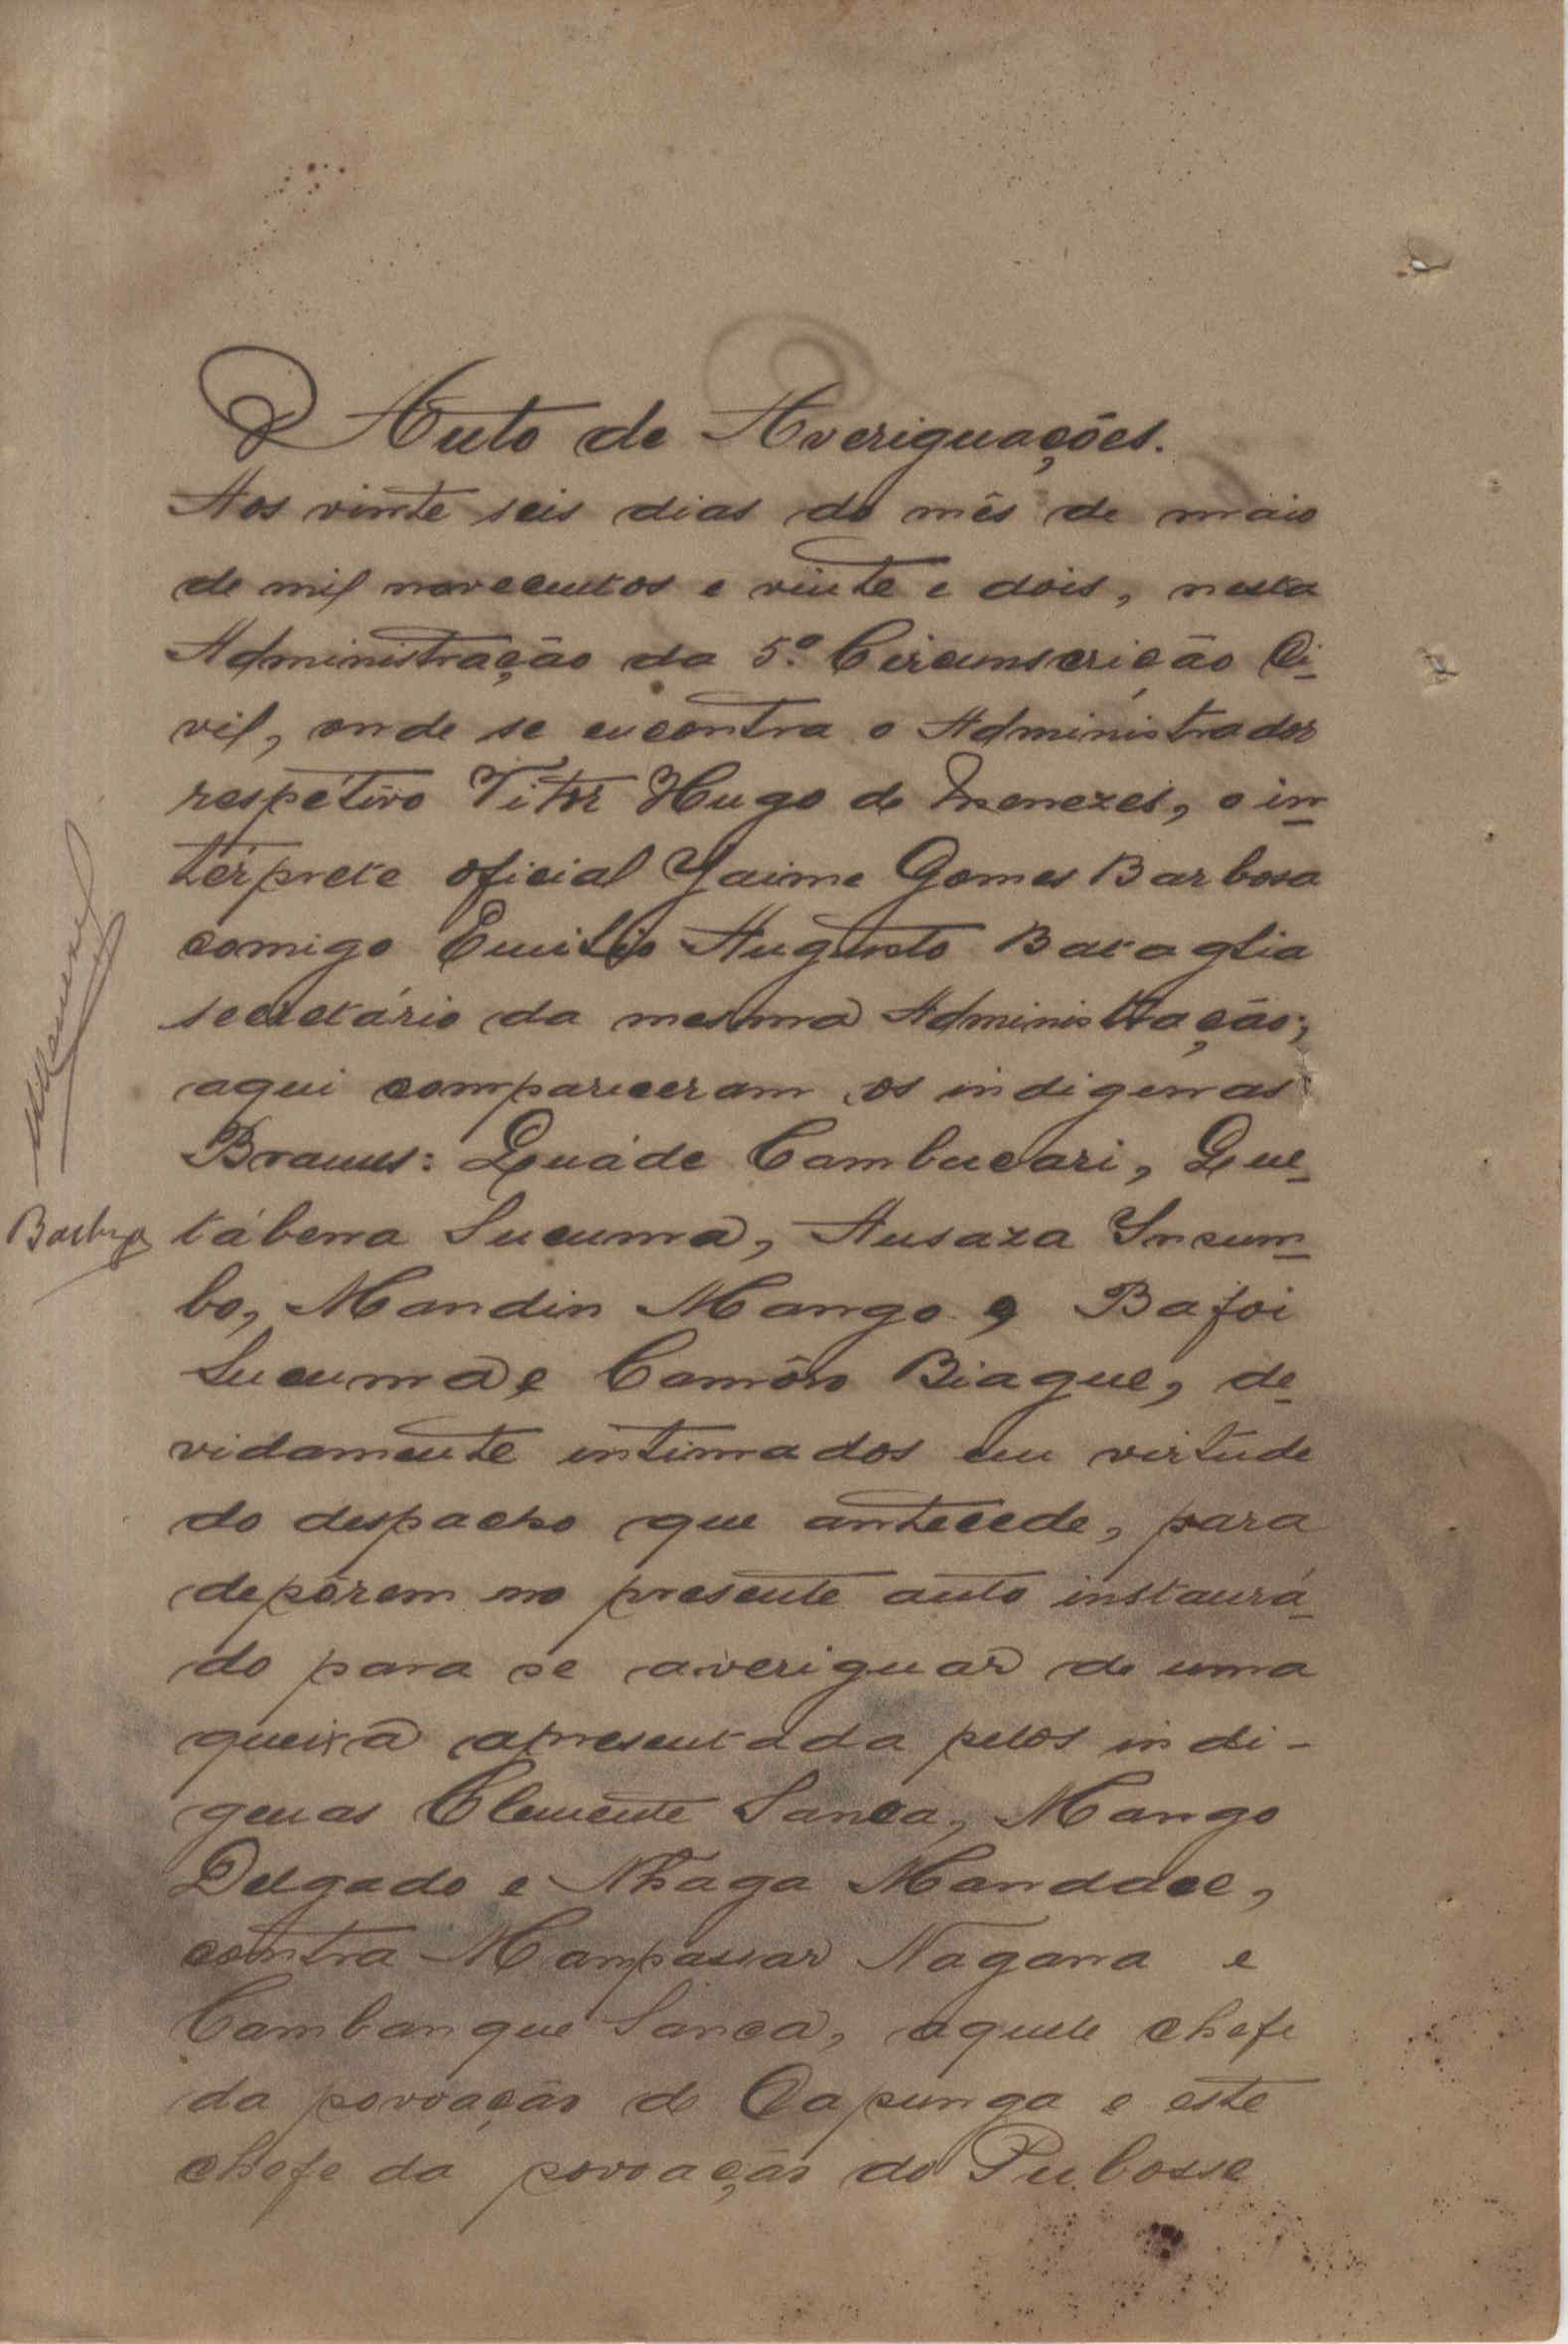 Auto de Averiguações.
Aos vinte seis dias do mês de maio
de mil novecentos e vinte e dois, nesta
Administração da 5.ª Circunscrição Ci-
vil, onde se encontra o Administrador
respétivo Vitor Hugo de Menezes, o in-
térprete oficial Jaime Gomes Barbosa
comigo Emilio Augusto Bataglia
secretário da mesma Administração;
aqui compareceram os indigenas
Brames: Quáde Cambucari, Que-
tábena Sucuma, Ausaza Incum-
bo, Mandin Mango e Bafoi
Sucuma e Comôn Biague, de-
vidamente intimados em virtude
do despacho que antecede, para
depôrem no presente auto instaurá-
do para se averiguar de uma
queixa apresentada pelos indi-
genas Clemente Sanca, Mango
Delgado e Nhaga
contra Nagana e
Cambanque Sanca, aquele chefe
da povoação de Capunga e este
chefe da povoação do Pubosse
Menezes
Barbosa